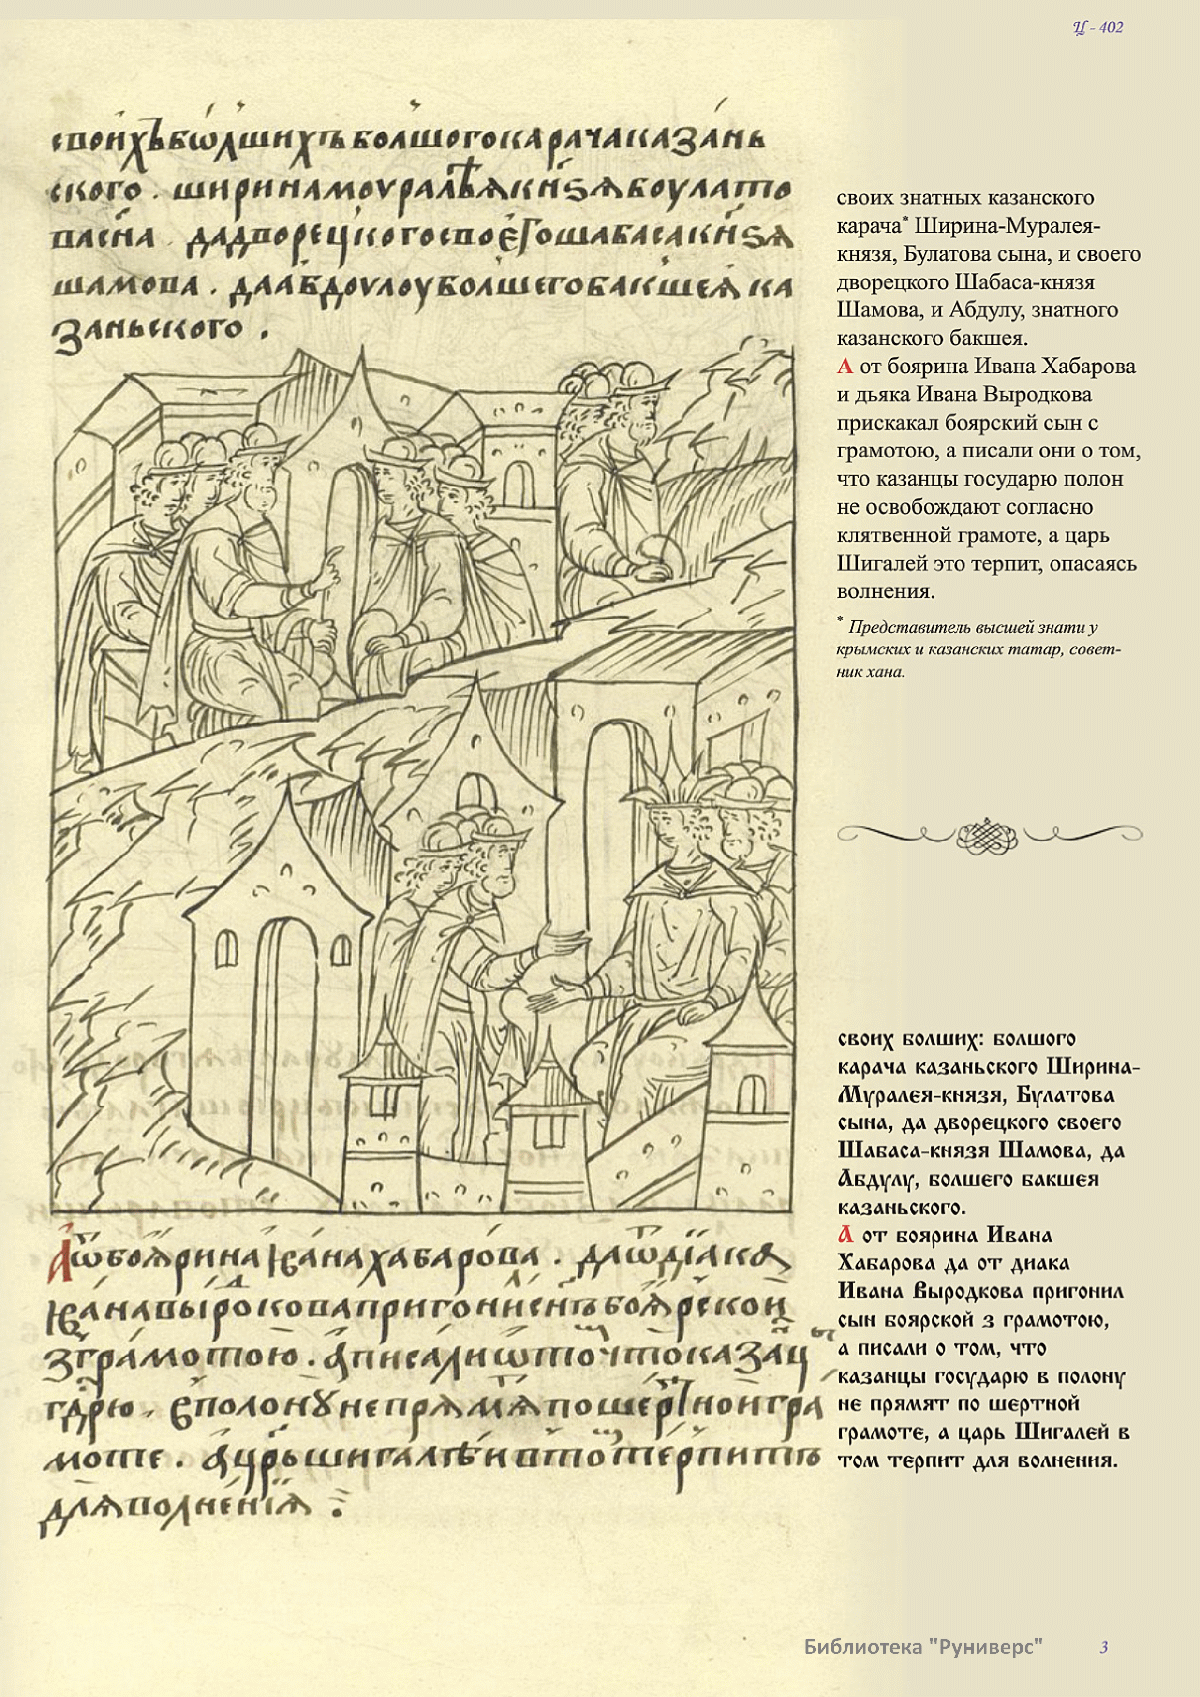 Ц - 402
своихъ болшихъ болшого карача казань
ского . ширина моуралѣя кнѕя боулато
ва сна да дворецкого своего шабаса кнѕя
шамова . да абдоулоу болшего бакшея ка
заньского .
А ѿ боярина Ивана хабарова . да ѿ дїака
Ивана выродкова пригони снъ боярской
з грамотою . а писали ѡ то что казанц
гдрю . в полонꙋ не прямя по шертной гра
моте . а црь шигалѣи в то терпитъ
для волненїя
своих знатных казанского
карача* Ширина-Муралея-
князя, Булатова сына, и своего
дворецкого Шабаса-князя
Шамова, и Абдулу, знатного
казанского бакшея.
А от боярина Ивана Хабарова
и дьяка Ивана Выродкова
прискакал боярский сын с
грамотою, а писали они о том,
что казанцы государю полон
не освобождают согласно
клятвенной грамоте, а царь
Шигалей это терпит, опасаясь
волнения.
* Представитель высшей знати у
крымских и казанских татар, совет-
ник хана.
своих болших: болшого
карача казаньского Ширина-
Муралея-князя, Булатова
сына, да дворецкого своего
Шабаса-князя Шамова, да
Абдулу, волшего бакшея
казаньского.
А от боярина Ивана
Хабарова да от диака
Ивана Выродкова пригонил
сын боярской з грамотою,
а писали о том, что
казанцы государю в полону
не прямят по шертной
грамоте, а царь Шигалей в
том терпит для волнения.
Библиотека "Руниверс"
3